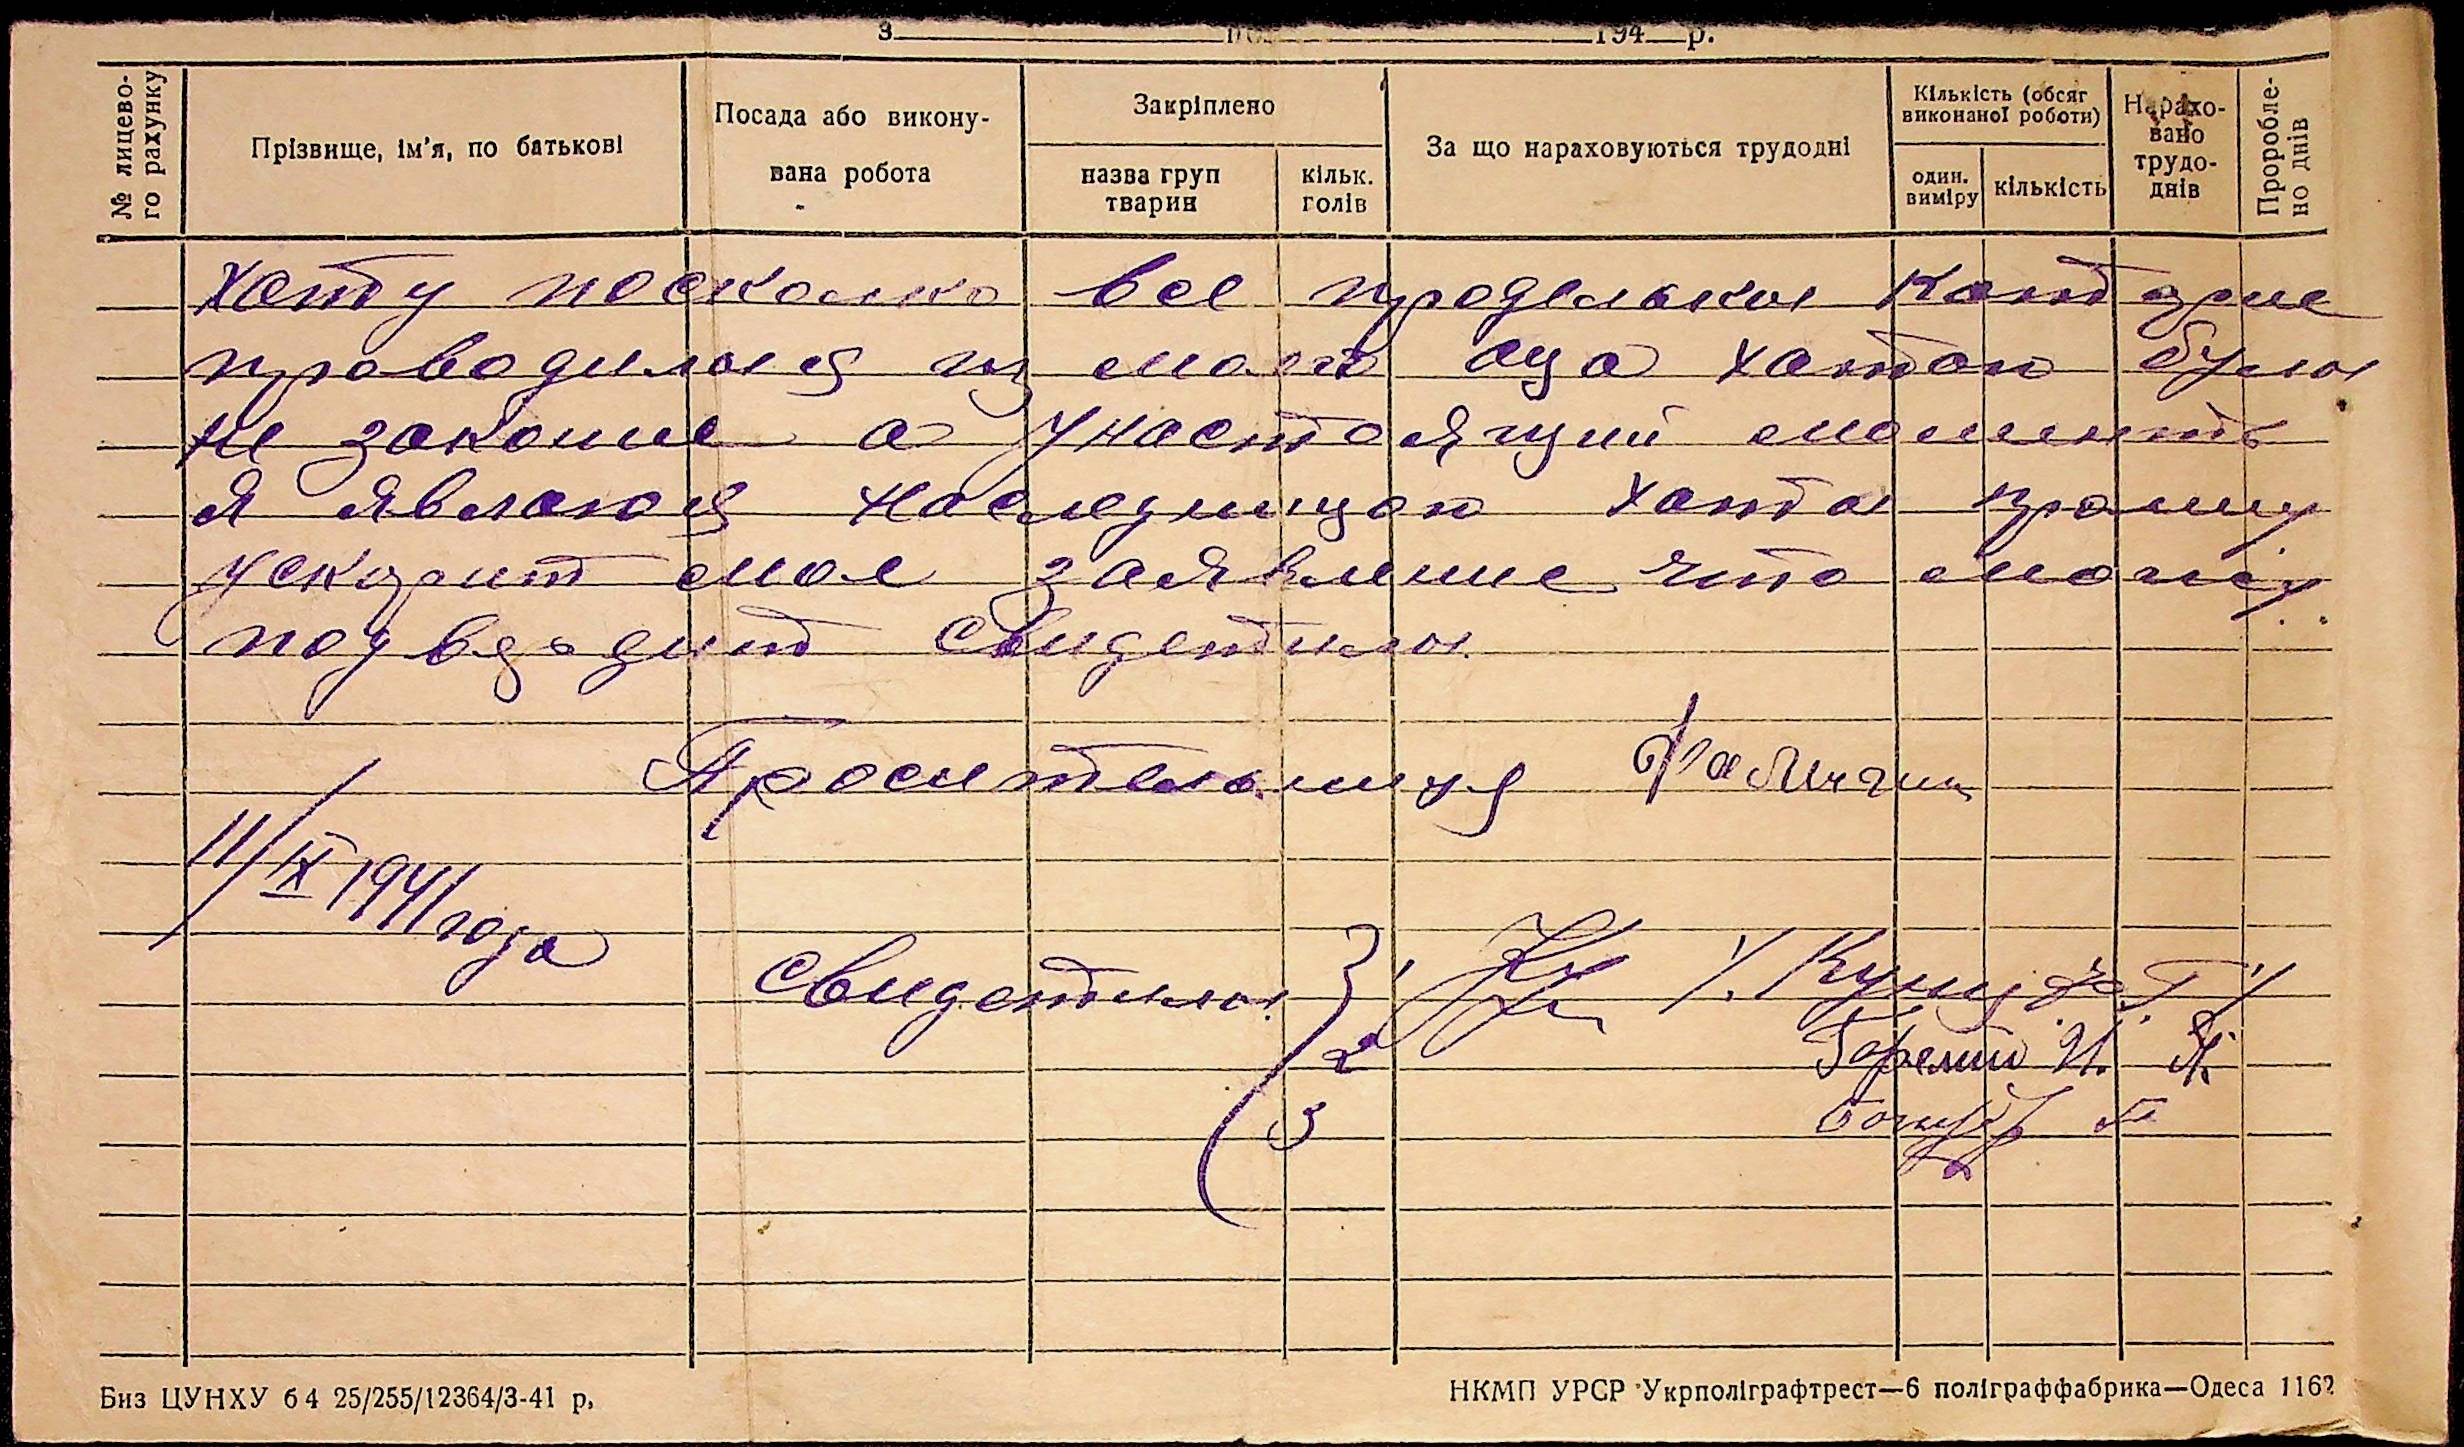 З 194 р.
№ лицево-
го рахунку
Прізвище, ім'я, по батькові
Посада або викону-
вана робота
Закріплено
назва груп
тварин
кільк.
голів
За що нараховуються трудодні
Кількість (обсяг
виконаної роботи)
один.
виміру
кількість
Нарахо-
вано
трудо-
днів
Проробле-
но днів
хату посколко все проделки которие
проводилися из моего отца хатою були
не законие а унастоящий моменть
я являюся наследницою хати прошу
ускорит мое заявление что могут
подвердит свидетили
Просительница
11/IX 1941 года
свидетили 1
2
3
Биз ЦУНХУ б4 25/255/12364/3-41 р.
НКМП УРСР Укрполіграфтрест—6 поліграффабрика—Одеса 1162